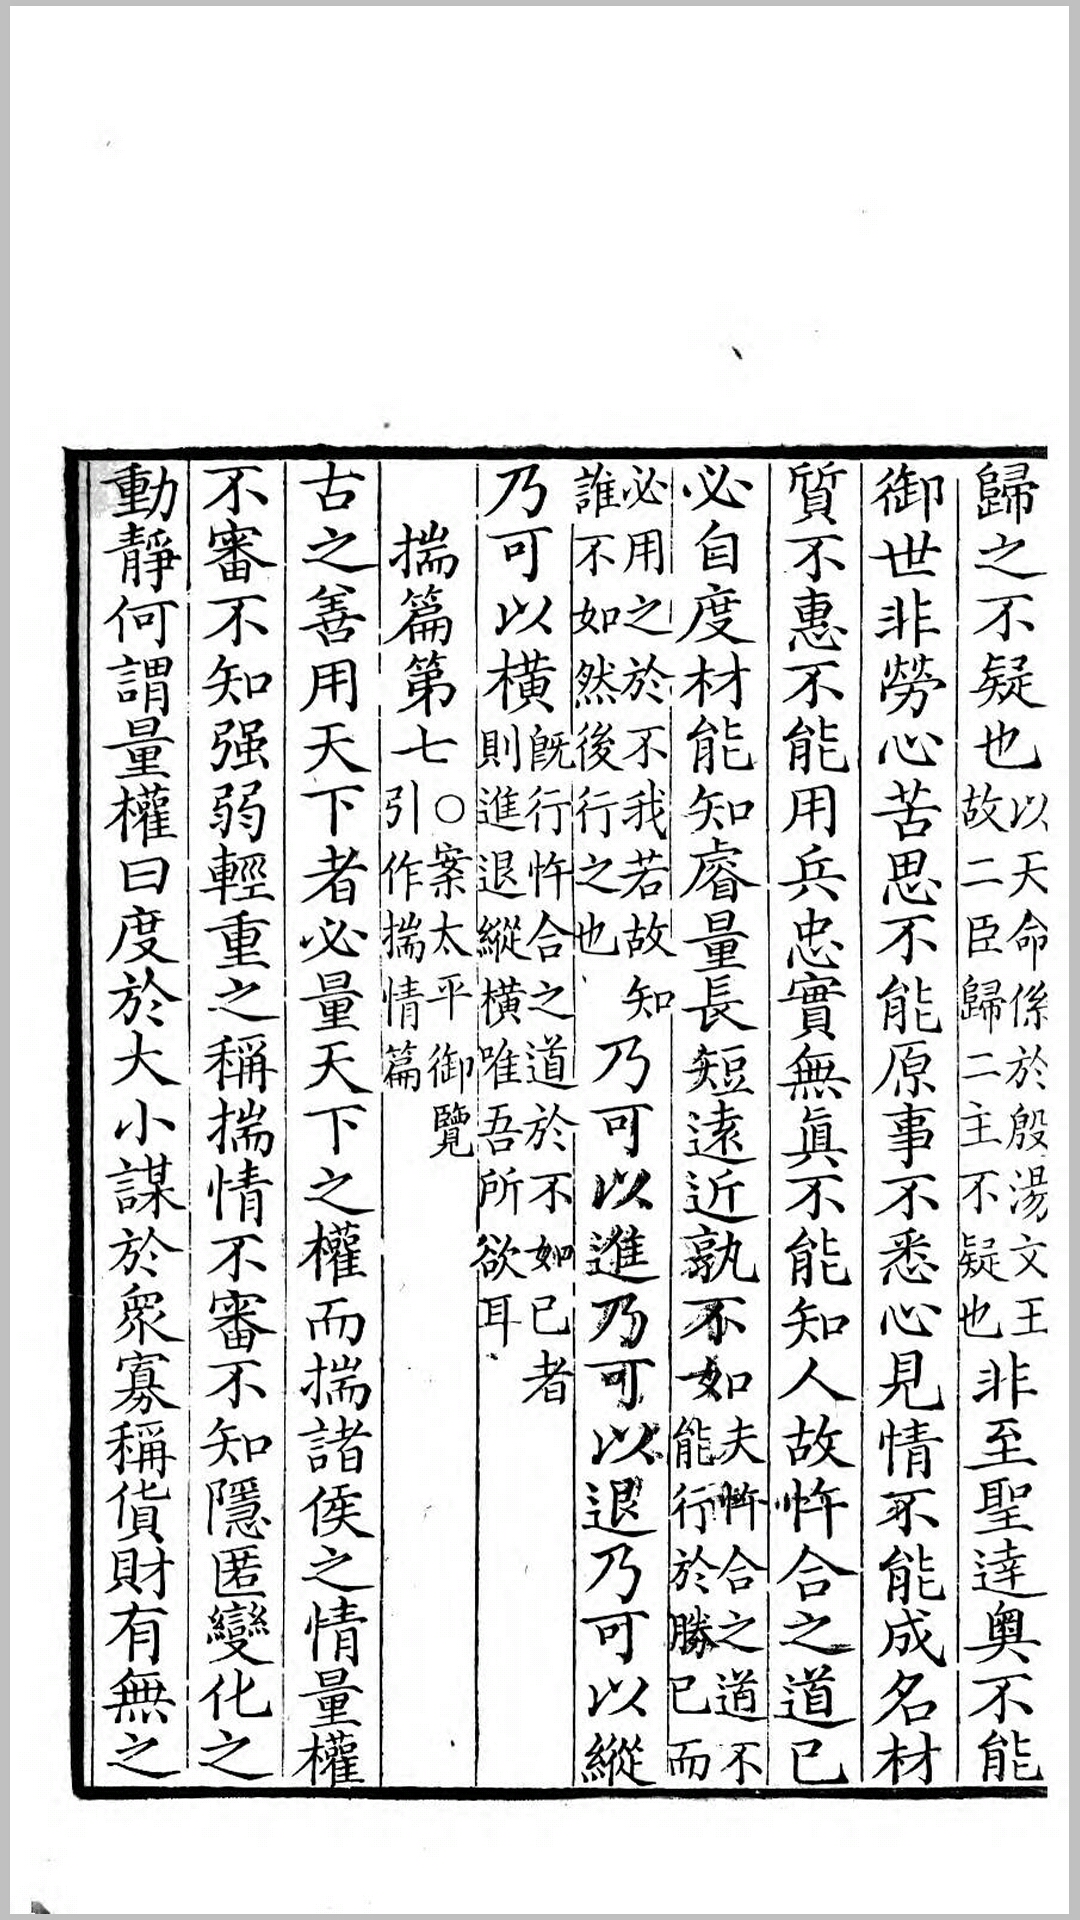 歸之不疑也以天命係於殷湯文王故二臣歸二主不疑也非至聖達奧不能
御世非勞心苦思不能原事不悉心見情不能成名材
質不惠不能用兵忠實無眞不能知人故忤合之道已
必自度材能知睿量長短遠近孰不如夫忤合之道不能行於勝已而
必用之於不我若故知誰不如然後行之也乃可以進乃可以退乃可以縱
乃可以橫旣行忤合之道於不如已者則進退縱橫唯吾所欲耳
揣篇第七○案太平御覽引作揣情篇
古之善用天下者必量天下之權而揣諸侯之情量權
不審不知强弱輕重之稱揣情不審不知隱匿變化之
動靜何謂量權曰度於大小謀於衆寡稱貨財有無之